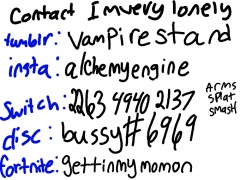 Contact Imvery lonely
tumblr: vampirestand
insta: alchemyengine
Switch: 2263 4940 2137
disc: bussy#6969
fortnite: gettinmymomon
Arms
splat
smash